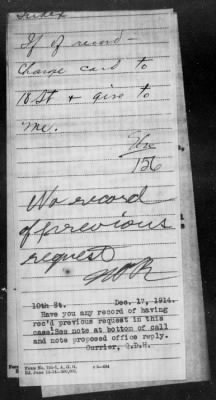 Index
If of record —
Charge card to
10 St + give to
me.
156
No record
of previous
request
10th St. Dec. 17, 1914.
Have you any record of having
rec'd previous request in this
case. See note at bottom of call
and note proposed office reply.
Currier, Q.D.H.